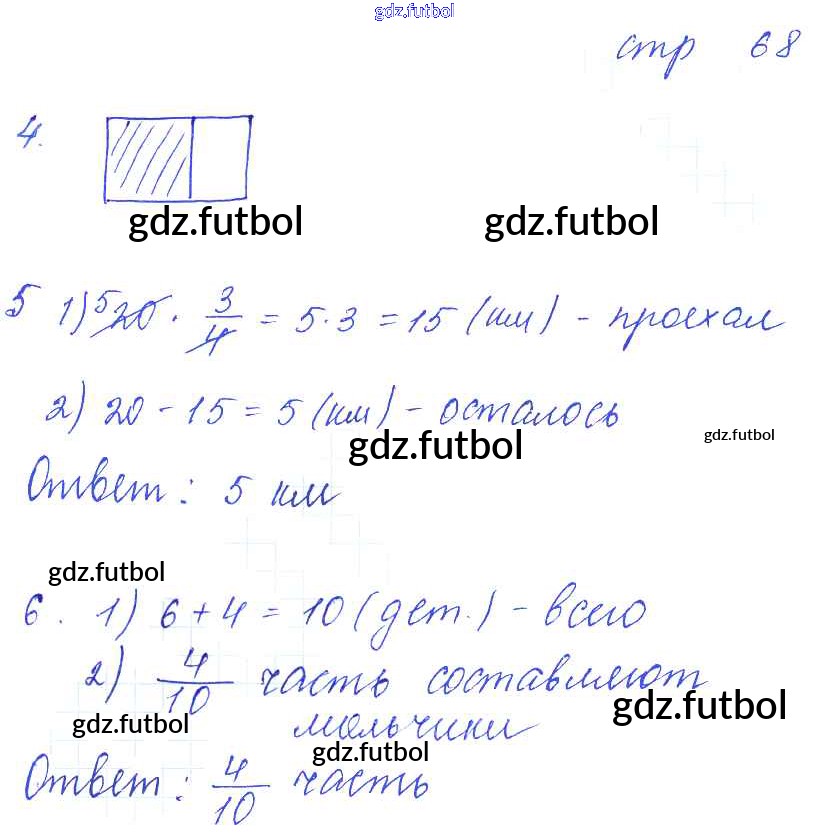 gdz.futbol
стр 68
4.
gdz.futbol gdz.futbol
5 1) 5 20 · 3/4 = 5·3 = 15 (км) - проехал
2) 20 - 15 = 5 (км) - осталось
gdz.futbol gdz.futbol
Ответ: 5 км
gdz.futbol
6. 1) 6 + 4 = 10 (дет.) - всего
2) 4/10 часть составляют
gdz.futbol gdz.futbol
мальчики
gdz.futbol
Ответ: 4/10 часть